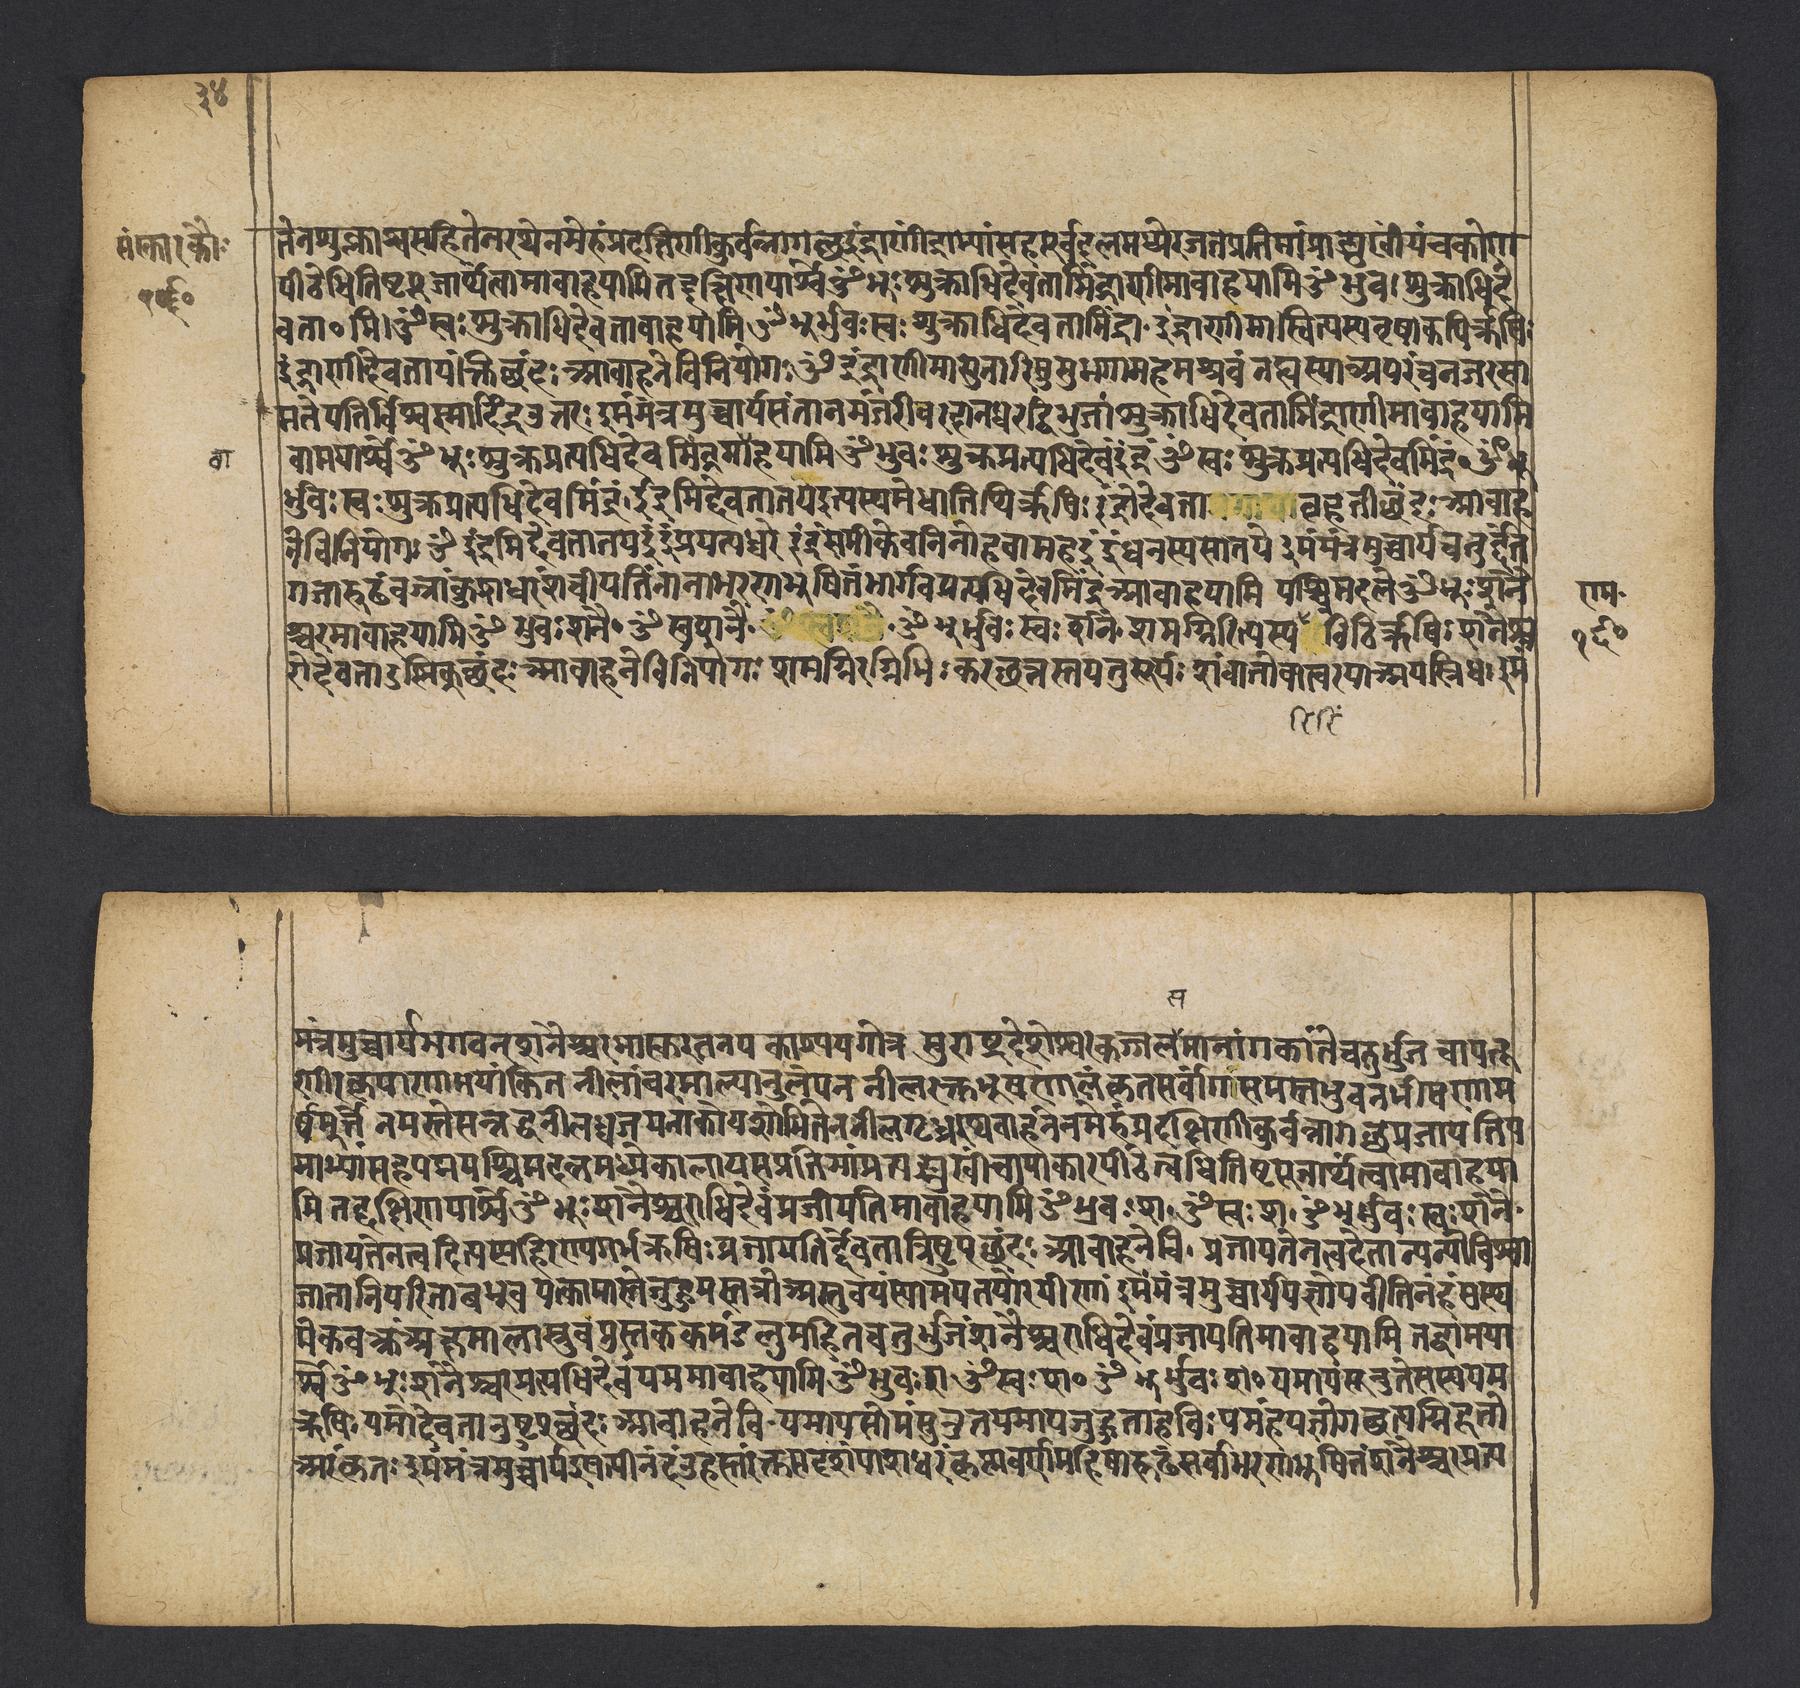 ३४
संस्कारकौ॰
१९०
तेनशुक्लाश्वसहितेनरथेनमेरुंप्रदक्षिणीकुर्वन्नागच्छइंद्राणींद्राभ्यांसहपूर्वदलमध्येरजतप्रतिमांप्राङ्मुखींपंचकोण
पीठेधितिष्टपूजार्थंत्वामावाहयामितद्दक्षिणपार्श्वेॐभूःशुक्राधिदेवतामिंद्राणीमावाहयामिॐभुवःशुक्राधिदे
वता॰मि।ॐस्वःशुक्राधिदेवतावाहयामिॐभूर्भुवःस्वःशुक्राधिदेवतामिंद्रा॰इंद्राणीमास्वित्यस्यवृषाकपिर्ऋषिः
इंद्राणीदेवतापंक्तिछंदःआवाहनेविनियोगःॐइंद्राणीमासुनारिषुसुभगामहमश्रवंनह्यस्याअपरंचनजरसा
मरतेपतिर्विश्वस्मादिंद्रउत्तरःइमंमंत्रमुच्चार्यसंतानमंजरीवरदानधरद्विभुजांशुक्राधिदेवतामिंद्राणीमावाहयामि
वा
वामपार्श्वेॐभूःशुक्रप्रत्यधिदेवमिंद्रमाहयामिॐभुवःशुक्रप्रत्यधिदेवंइंद्रंॐस्वःशुक्रप्रत्यधिदेवमिंद्रं॰ॐभू
र्भुवःस्वःशुक्रप्रत्यधिदेवमिंद्रं॰इंद्रमिद्देवतातयेइत्यस्यमेधातिथिर्ऋषिःइंद्रोदेवता बृहतीछंदःआवाह
नेविनियोगःॐइंद्रमिद्देवतातयइंद्रंप्रयत्यध्वरे इंद्रंसमीकेवनिनोहवामहइंद्रंधनस्यसातये इमंमंत्रमुच्चार्यचतुर्दंत
गजारूढंवज्रांकुशधरंशचीपतिंनानाभरणभूषितंभार्गवप्रत्यधिदेवमिंद्रंआवाहयामि पश्चिमदलेॐभूःशनै
श्चरमावाहयामिॐ भुवःशनै॰ ॐ स्वःशनै॰ ॐभूर्भुवःस्वःशनै॰शमग्निरित्यस्य रिबिठिर्ऋषिःशनैश्च
राम॰
१९०
रोदेवताउष्णिक्छंदःआवाहनेविनियोगःशमग्निरग्निभिःकरच्छन्नस्तपतुसूर्यःशंवातोवात्वरपाअपस्रिधःइमं
मंत्रमुच्चार्यभगवनशनैश्चरभास्करतनयकाश्यपगोत्र सुराष्ट्रदेशेश्वरकज्जलमानांगकांतेचतुर्भुज चापतू
स
णीरकृपाणाभयांकित नीलांबरमाल्यानुलेपन नीलरक्तभूषणालंकृतसर्वांगसमस्तभुवनभीषणाम
र्षमूर्त्ते नमस्तेसन्नद्धनीलध्वजपताकोपशोभितेननीलगृध्ररथवाहनेनमेरुंप्रदक्षिणीकुर्वन्नागछप्रजापतिय
माभ्यांसहपद्मपश्चिमदलमध्येकालायसप्रतिमांप्रत्यङ्मुखींचापाकारपीठेत्वधितिष्टपूजार्थंत्वामावाहया
मि तद्दक्षिणपार्श्वेॐभूःशनैश्चराधिदेवंप्रजापतिमावाहयामिॐभुवःश॰ॐस्वःश॰ॐभूर्भुवःस्वःशनै॰
प्रजापतेनत्वदित्यस्यहिरण्यगर्भऋषिःप्रजापतिर्देवतात्रिष्टुप्छंदःआवाहनेवि॰प्रजापतेनत्वदेतान्यन्योविश्वा
जातानिपरिताबभूव यत्कामास्तेजुहुमस्तन्नोअस्तुवयंस्यामपतयोरयीणां इमंमंत्रमुच्चार्ययज्ञोपवीतिनंहंसस्थ
मेकवक्त्रंअक्षमालास्रुवपुस्तककमंडलुसहितचतुर्भुजंशनैश्चराधिदेवंप्रजापतिमावाहयामि तद्वामपा
र्श्वेॐभूःशनैश्चरप्रत्यधिदेवंयममावाहयामिॐभुवःश॰ॐस्वःश॰ॐभूर्भुवःश॰यमायसोमंसुनुतेत्यस्ययम
ऋषिःयमोदेवतानुष्टुप्छंदःआवाहनेवि॰यमायसोमंसुनुतयमायजुहुताहविःयमंहयज्ञोगच्छत्यग्निदूतो
अरंकृतःइमंमंत्रमुच्चार्यईषत्पीनंदंडहस्तंरक्तसदृशंपाशधरंकृष्णवर्णंमहिषारूढंसर्वाभरणभूषितंशनैश्चरप्रत्य